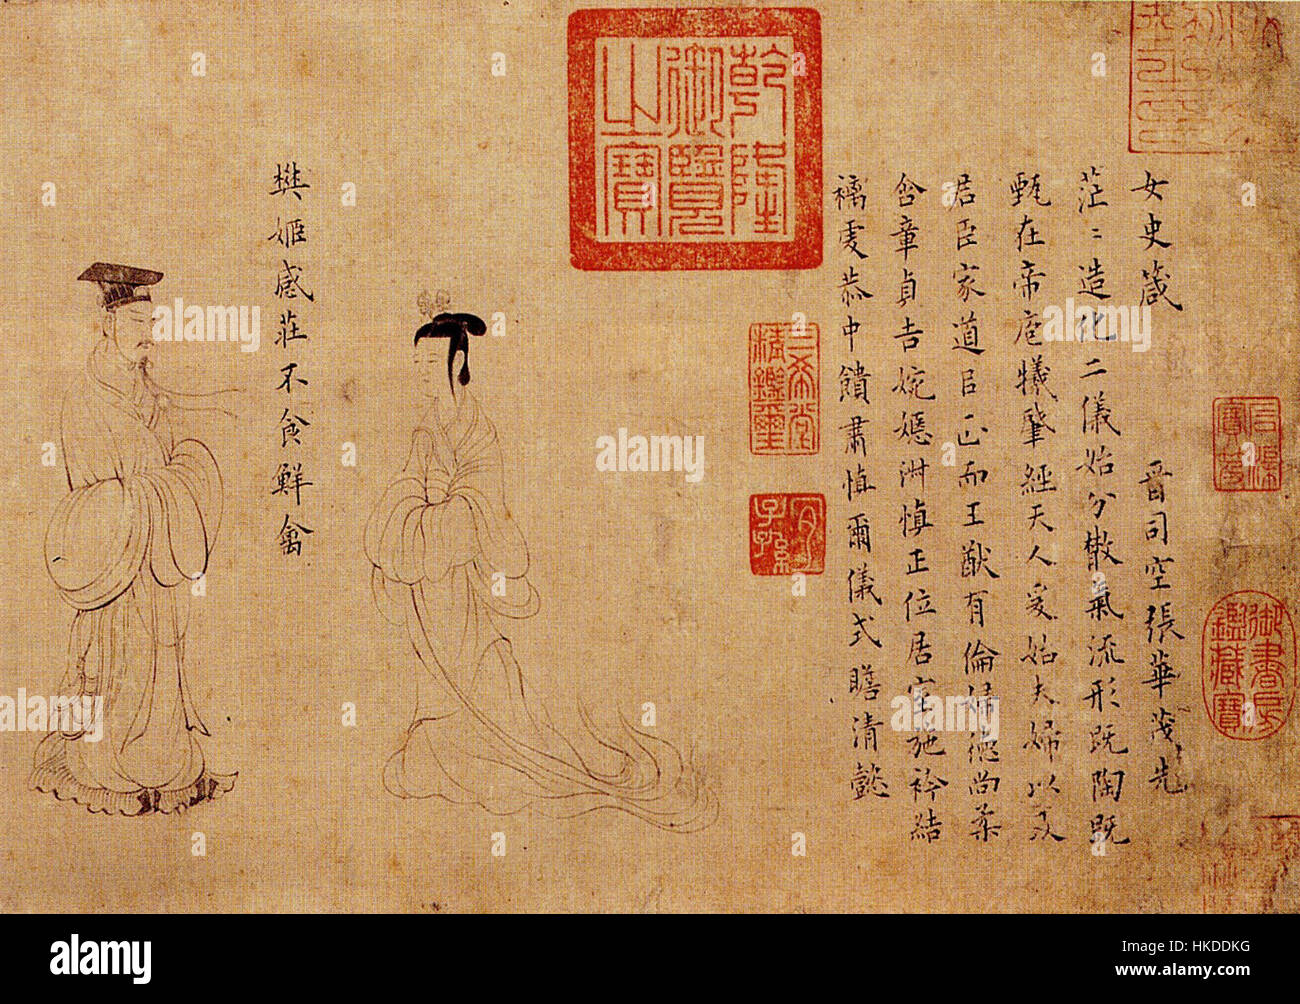 女史箴 晉司空張華茂先
茫〻造化二儀始分散氣流形既陶既
甄在帝庖犧肇經天人爰始夫婦以及
君臣家道㠯正而王猷有倫婦德尚柔
含章貞吉婉嫕淑慎正位居室施衿結
褵虔恭中饋肅慎爾儀式瞻清懿
樊姬感莊不食鮮禽
乾隆
御覽
之寶
三希堂
精鑑璽
宜
子孫
石渠
寶笈
御書房
鑑藏寶
alamy
alamy
Image ID: HKDDKG
www.alamy.com